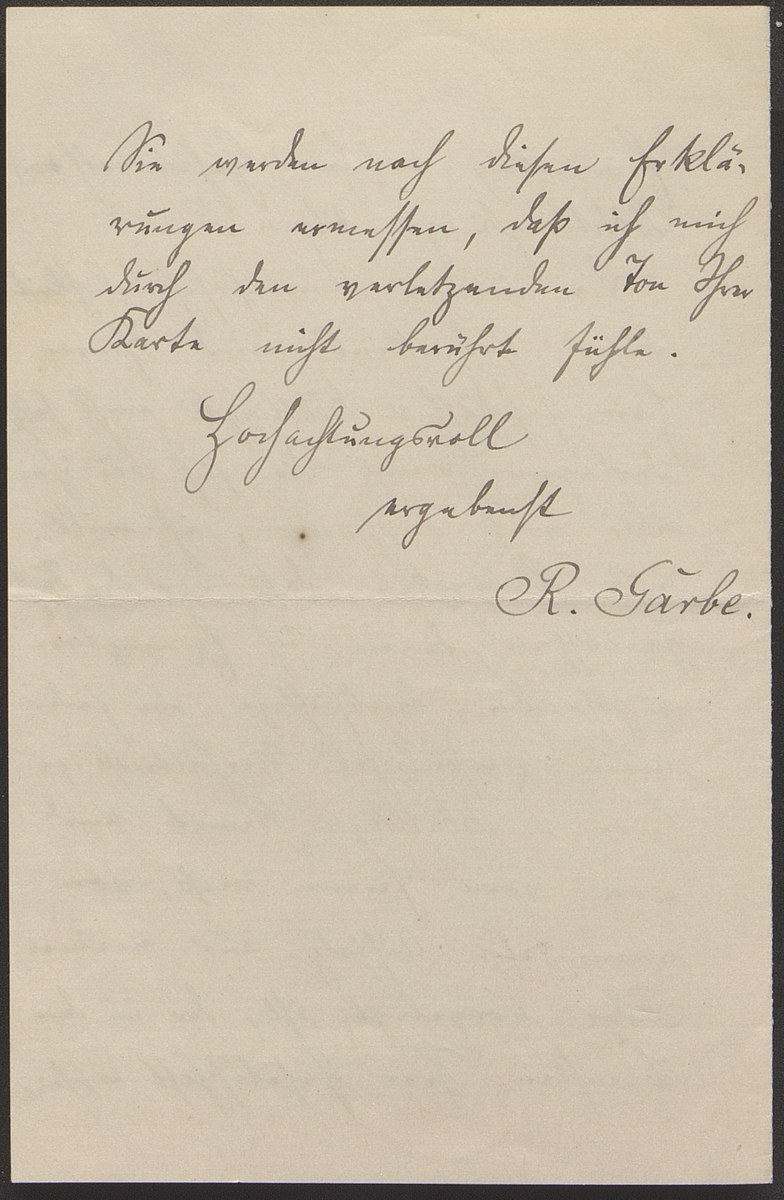 Sie werden nach diesen Erklä-
rungen ermessen, daß ich mich
durch den verletzenden Ton Ihrer
Karte nicht berührt fühle.
Hochachtungsvoll
ergebenst
R. Garbe.